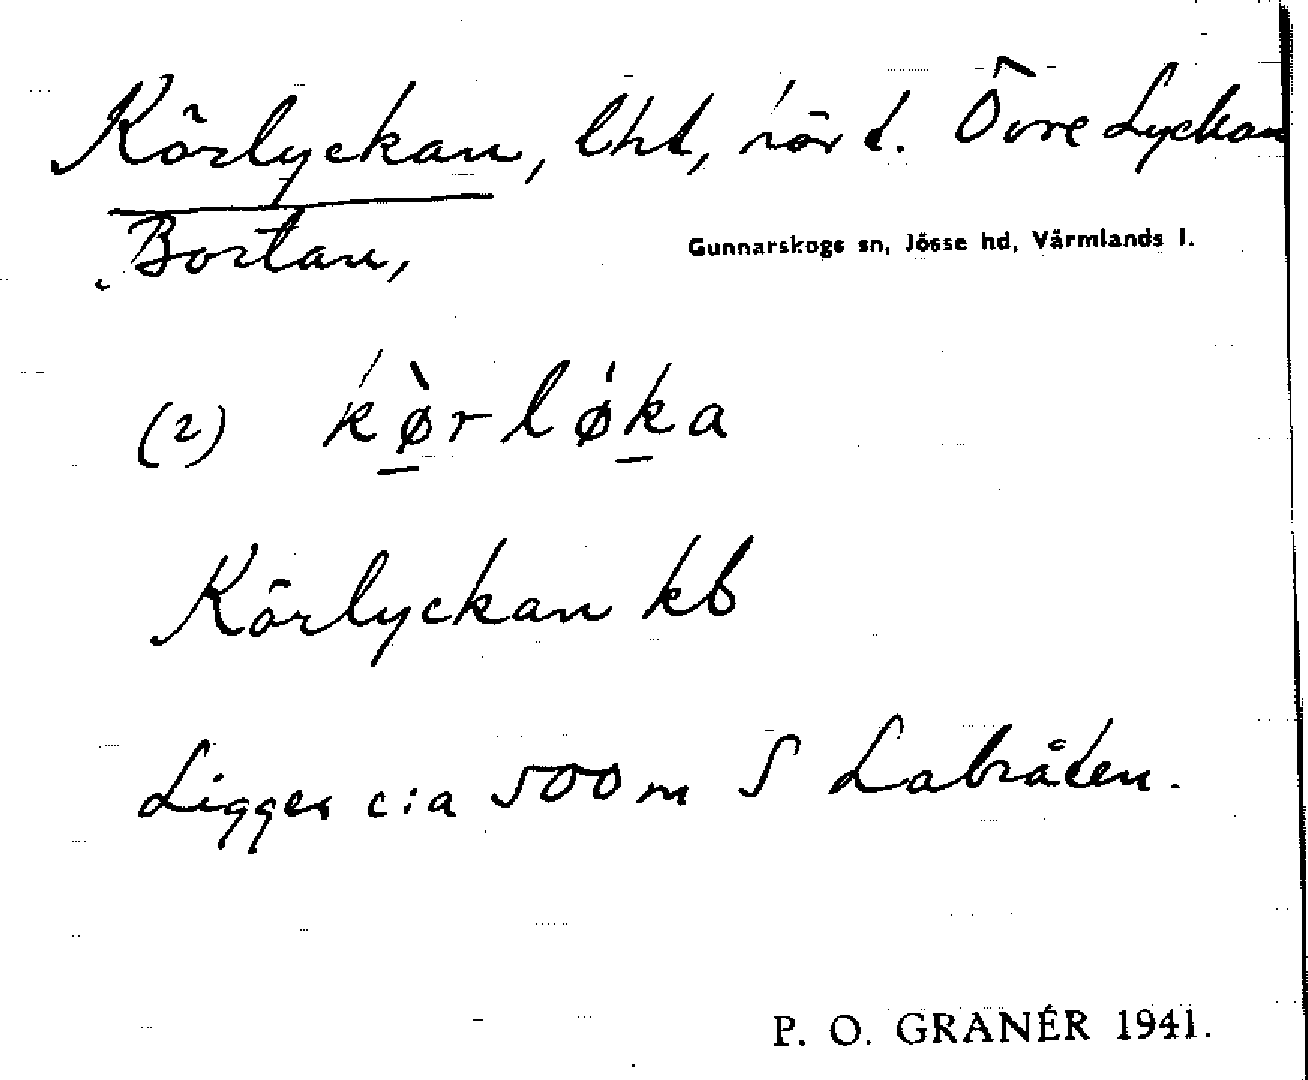 Körlyckan, lht, hör t. Övre Lyckan
Bortan,
Gunnarskogs sn, Jösse hd, Värmlands l.
(2) kø̀rløka
Körlyckan kb
Ligger c:a 500 m S Labråten.
P. O. GRANÉR 1941.